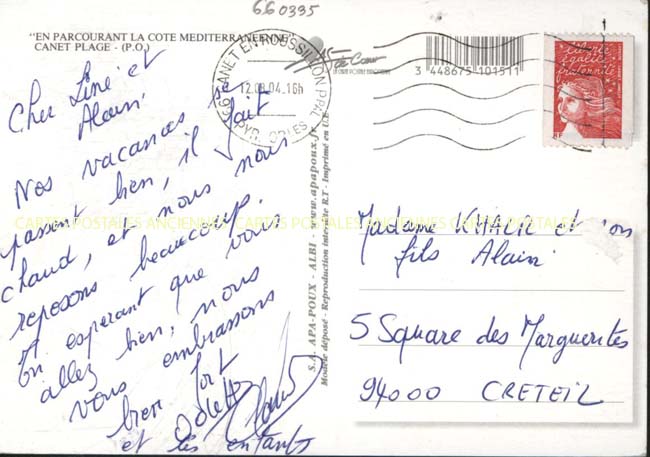 660335
"EN PARCOURANT LA COTE MEDITERRANEENNE"
CANET PLAGE - (P.O.)
66 CANET EN ROUSSILLON PPAL
12.08.04.16h
PYR. ORLES
APA-POUX
3 448675 101511
liberté
égalité
fraternité
RF
Cher Line et
Alain,
Nos vacances se
passent bien, il fait
chaud, et nous nous
reposons beaucoup.
En esperant que vous
allez bien, nous
vous embrassons
bien fort
Odette
et les enfants
S.A. APA-POUX - ALBI - www.apapoux.fr
Modèle déposé - Reproduction interdite R.T - Imprimé en U.E
Madame KHALIL et son
fils Alain
5 Square des Marguerites
94000 CRETEIL
CARTES POSTALES ANCIENNES CARTES POSTALES ANCIENNES CARTES POSTALES